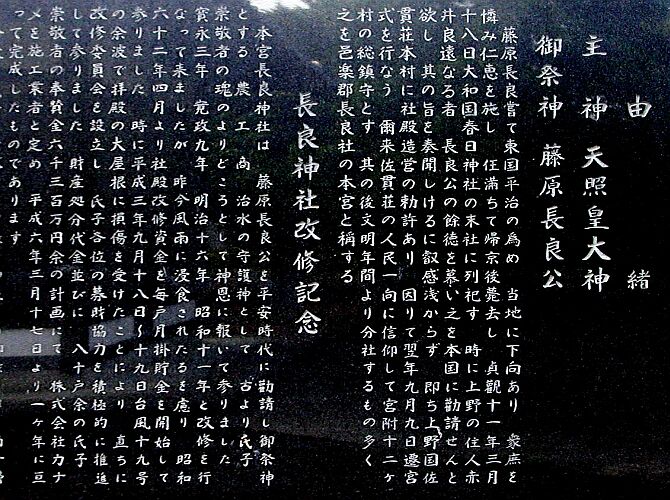 由緒
主神 天照皇大神
御祭神 藤原長良公
藤原長良嘗て東国平治の為め 当地に下向あり 衆庶を
憐み仁恵を施し 任満ちて帰京後薨去し 貞観十一年三月
十八日大和国春日神社の末社に列祀す 時に上野の住人赤
井良遠なる者 長良公の餘徳を慕い之を本国に勧請せんと
欲し 其の旨を奏聞しけるに叡感浅からず 即ち上野国佐
貫荘本村に社殿造営の勅許あり 因りて翌年九月九日遷宮
式を行なう 爾来佐貫荘の人民一向に信仰して宮附十二ヶ
村の総鎮守とす 其の後文明年間より分社するもの多く
之を邑楽郡長良社の本宮と稱する
長良神社改修記念
本宮長良神社は 藤原長良公を平安時代に勧請し御祭神
とする 農 工 商 治水の守護神として 古より氏子
崇敬者の魂のよりどころとして神恩に報いて参りました
寛永三年 寛政九年 明治十六年 昭和十一年と改修を行
なって来ましたが 昨今風雨に浸食されたるを慮り 昭和
六十二年四月より社殿改修資金を毎戸月掛貯金を開始して
参りました 時に平成三年九月十八日〜十九日台風十九号
の余波で拝殿の大屋根に損傷を受けたことにより 直ちに
改修委員会を設立し 氏子各位の募財協力を積極的に推進
して参りました 財産処分代金並びに 八十戸余の氏子
崇敬者の奉賛金六千三百万円余の計画にて 株式会社カナ
メを施工業者と定め 平成六年三月十七日より一ヶ年に亘
って完成したものであります